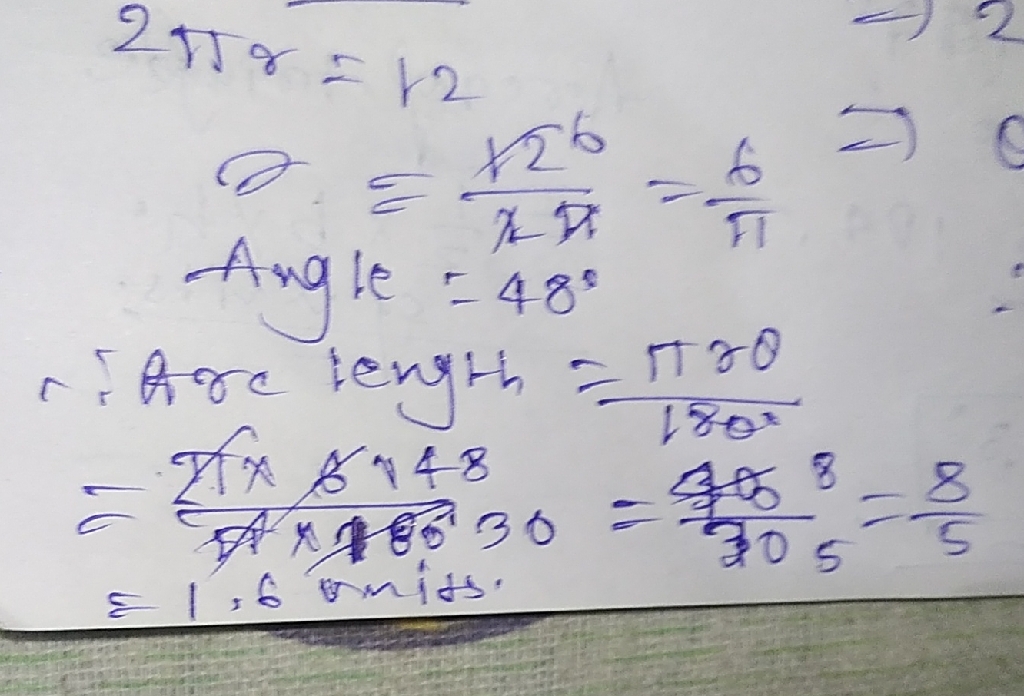 2πr = 12
⇒ 2
r = 12 6 / 2π = 6/π
⇒
Angle = 48°
∴ Arc length = πrθ / 180°
= π × 6 × 48 / π × 180 30 = 48 8 / 30 5 = 8/5
= 1.6 units.